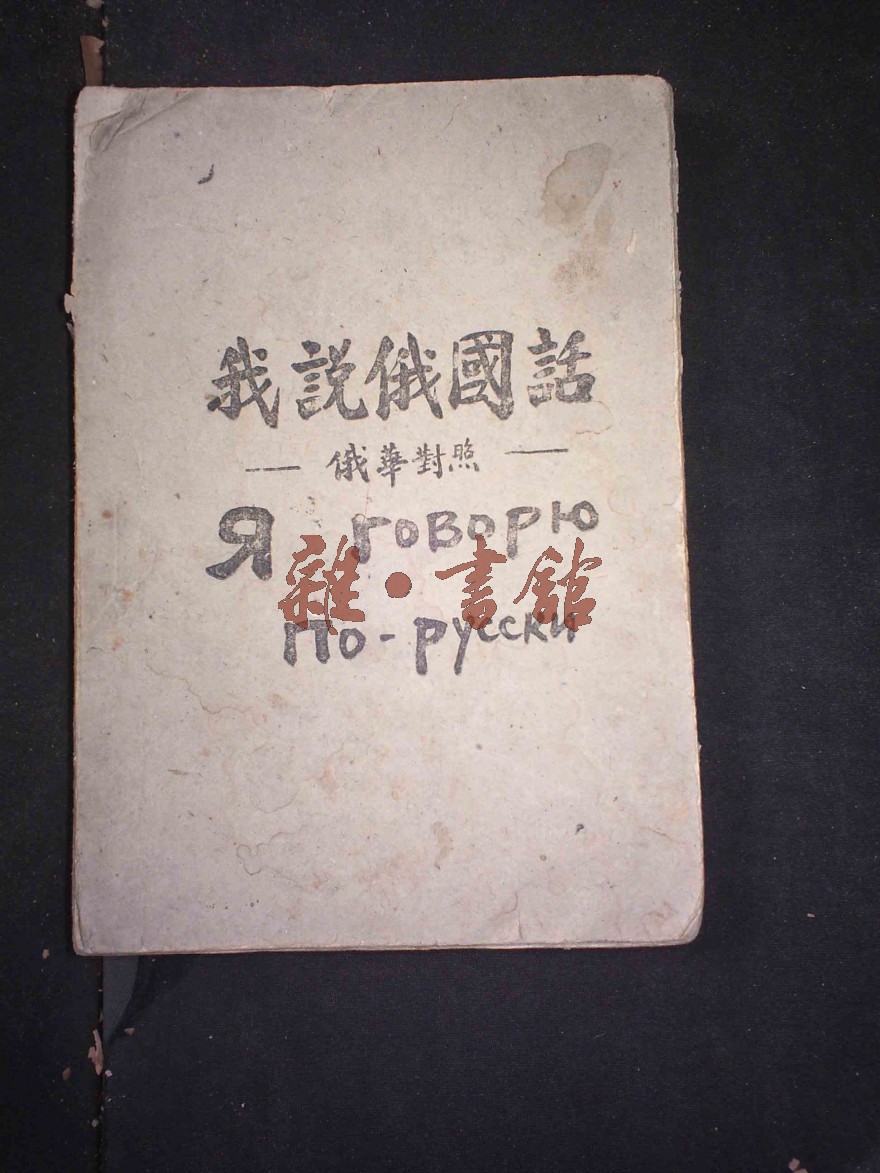 我説俄國話
— 俄華對照 —
Я говорю
雜·書館
по-русски